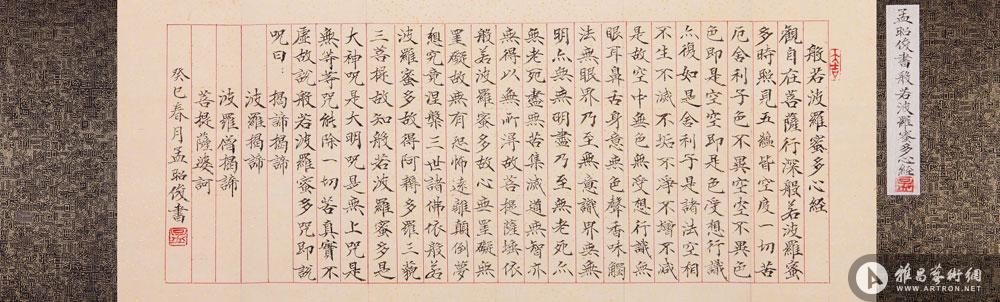 孟昭俊書般若波羅蜜多心經
般若波羅蜜多心經
觀自在菩薩行深般若波羅蜜
多時照見五蘊皆空度一切苦
厄舍利子色不異空空不異色
色即是空空即是色受想行識
亦復如是舍利子是諸法空相
不生不滅不垢不淨不增不減
是故空中無色無受想行識無
眼耳鼻舌身意無色聲香味觸
法無眼界乃至無意識界無無
明亦無無明盡乃至無老死亦
無老死盡無苦集滅道無智亦
無得以無所得故菩提薩埵依
般若波羅蜜多故心無罣礙無
罣礙故無有恐怖遠離顛倒夢
想究竟涅槃三世諸佛依般若
波羅蜜多故得阿耨多羅三藐
三菩提故知般若波羅蜜多是
大神咒是大明咒是無上咒是
無等等咒能除一切苦真實不
虛故說般若波羅蜜多咒即說
咒曰：揭諦揭諦
波羅揭諦
波羅僧揭諦
菩提薩婆訶
癸巳春月孟昭俊書
雅昌藝術網
WWW.ARTRON.NET